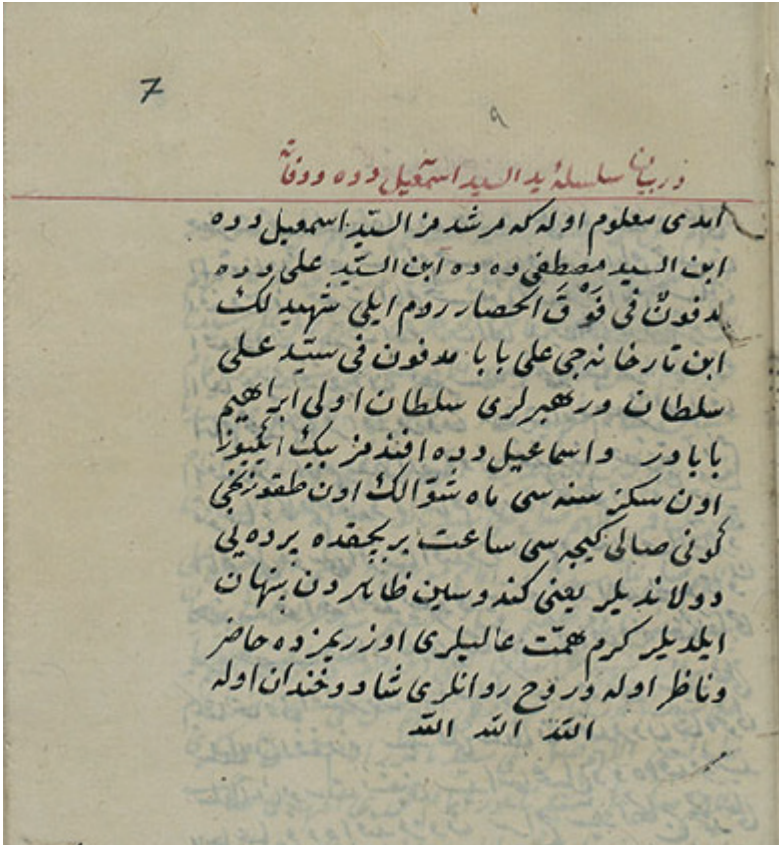 7
٩
در بیان سلسلۀ ید السید اسمعیل دده ووفاته
ایمدی معلوم اوله که مرشدمز السیّد اسمعیل دده
ابن السید مصطفی دده ابن السیّد علی دده
مدفونٌ فی فَوْقَ الحصار روم ایلی شهیدلك
ابن تارخانه جی علی بابا مدفون فی سیّد علی
سلطان ورهبرلری سلطان اولی ابراهیم
بابادر واسماعیل دده افندمز بیك ایكیوز
اون سكز سنه سی ماه شوّالك اون طقوزنجی
كونی صالی كیجه سی ساعت بر بچقده پرده یی
دولاندیلر یعنی كندوسین ظاهردن پنهان
ایلدیلر كرم همّت عالیلری اوزریمزده حاضر
وناظر اوله وروح روانلری شاد وخندان اوله
اللّه اللّه اللّه